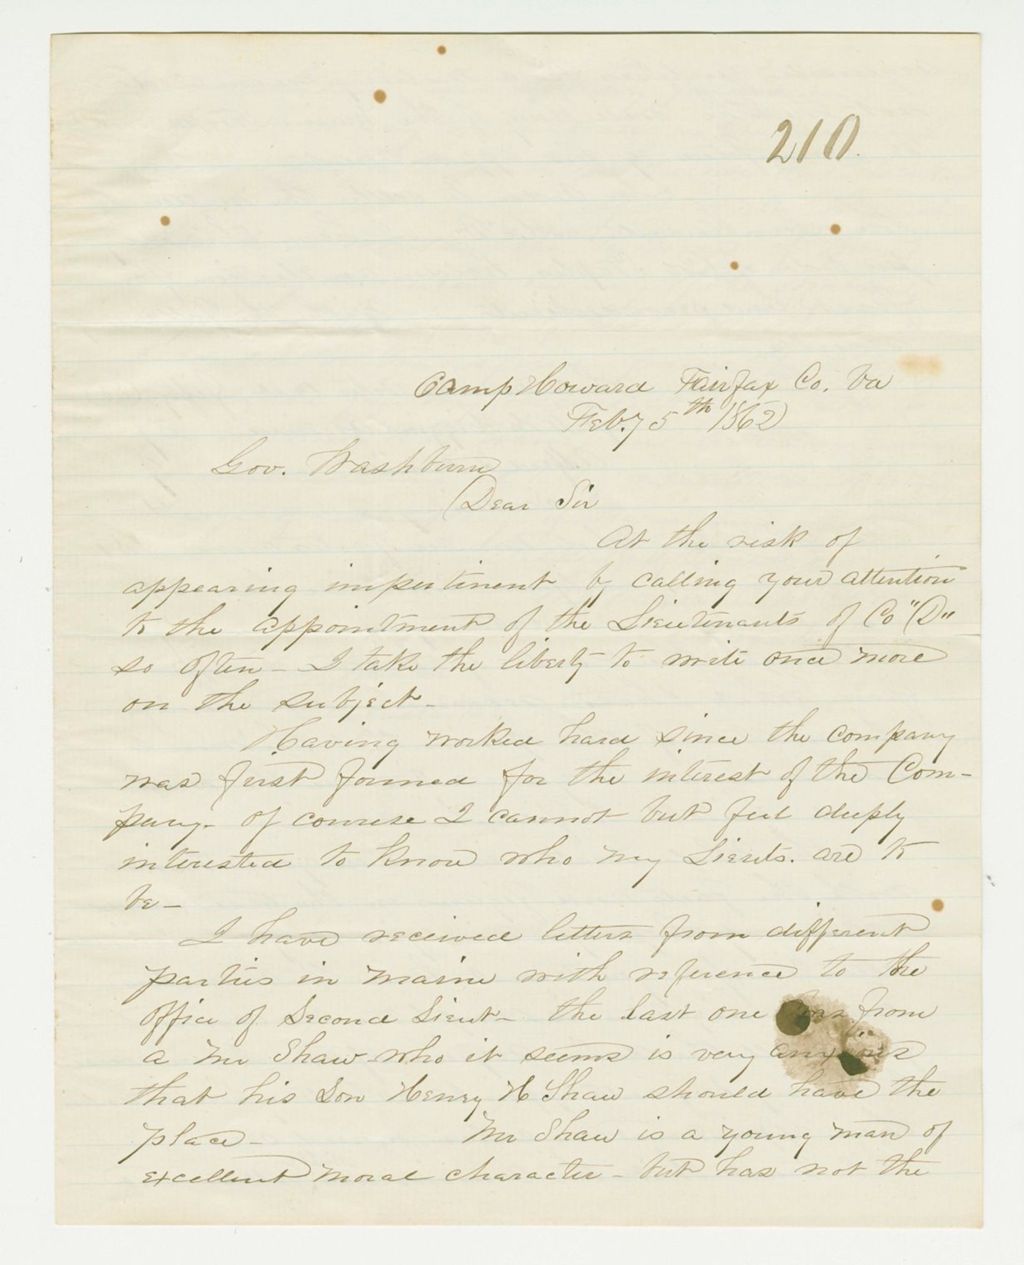 210.
Camp Howard Fairfax Co. Va
Feby 5th 1862
Gov. Washburn
Dear Sir
At the risk of
appearing impertinent by calling your attention
to the appointment of the Lieutenants of Co "D"
so often - I take the liberty to write once more
on the subject -
Having worked hard since the company
was first formed for the interest of the Com-
pany - of course I cannot but feel deeply
interested to know who my Lieuts. are to
be -
I have received letters from different
parties in Maine with reference to the
office of Second Lieut - the last one was from
a Mr Shaw who it seems is very anxious
that his Son Henry H Shaw should have the
place - Mr Shaw is a young man of
excellent moral character - but has not the